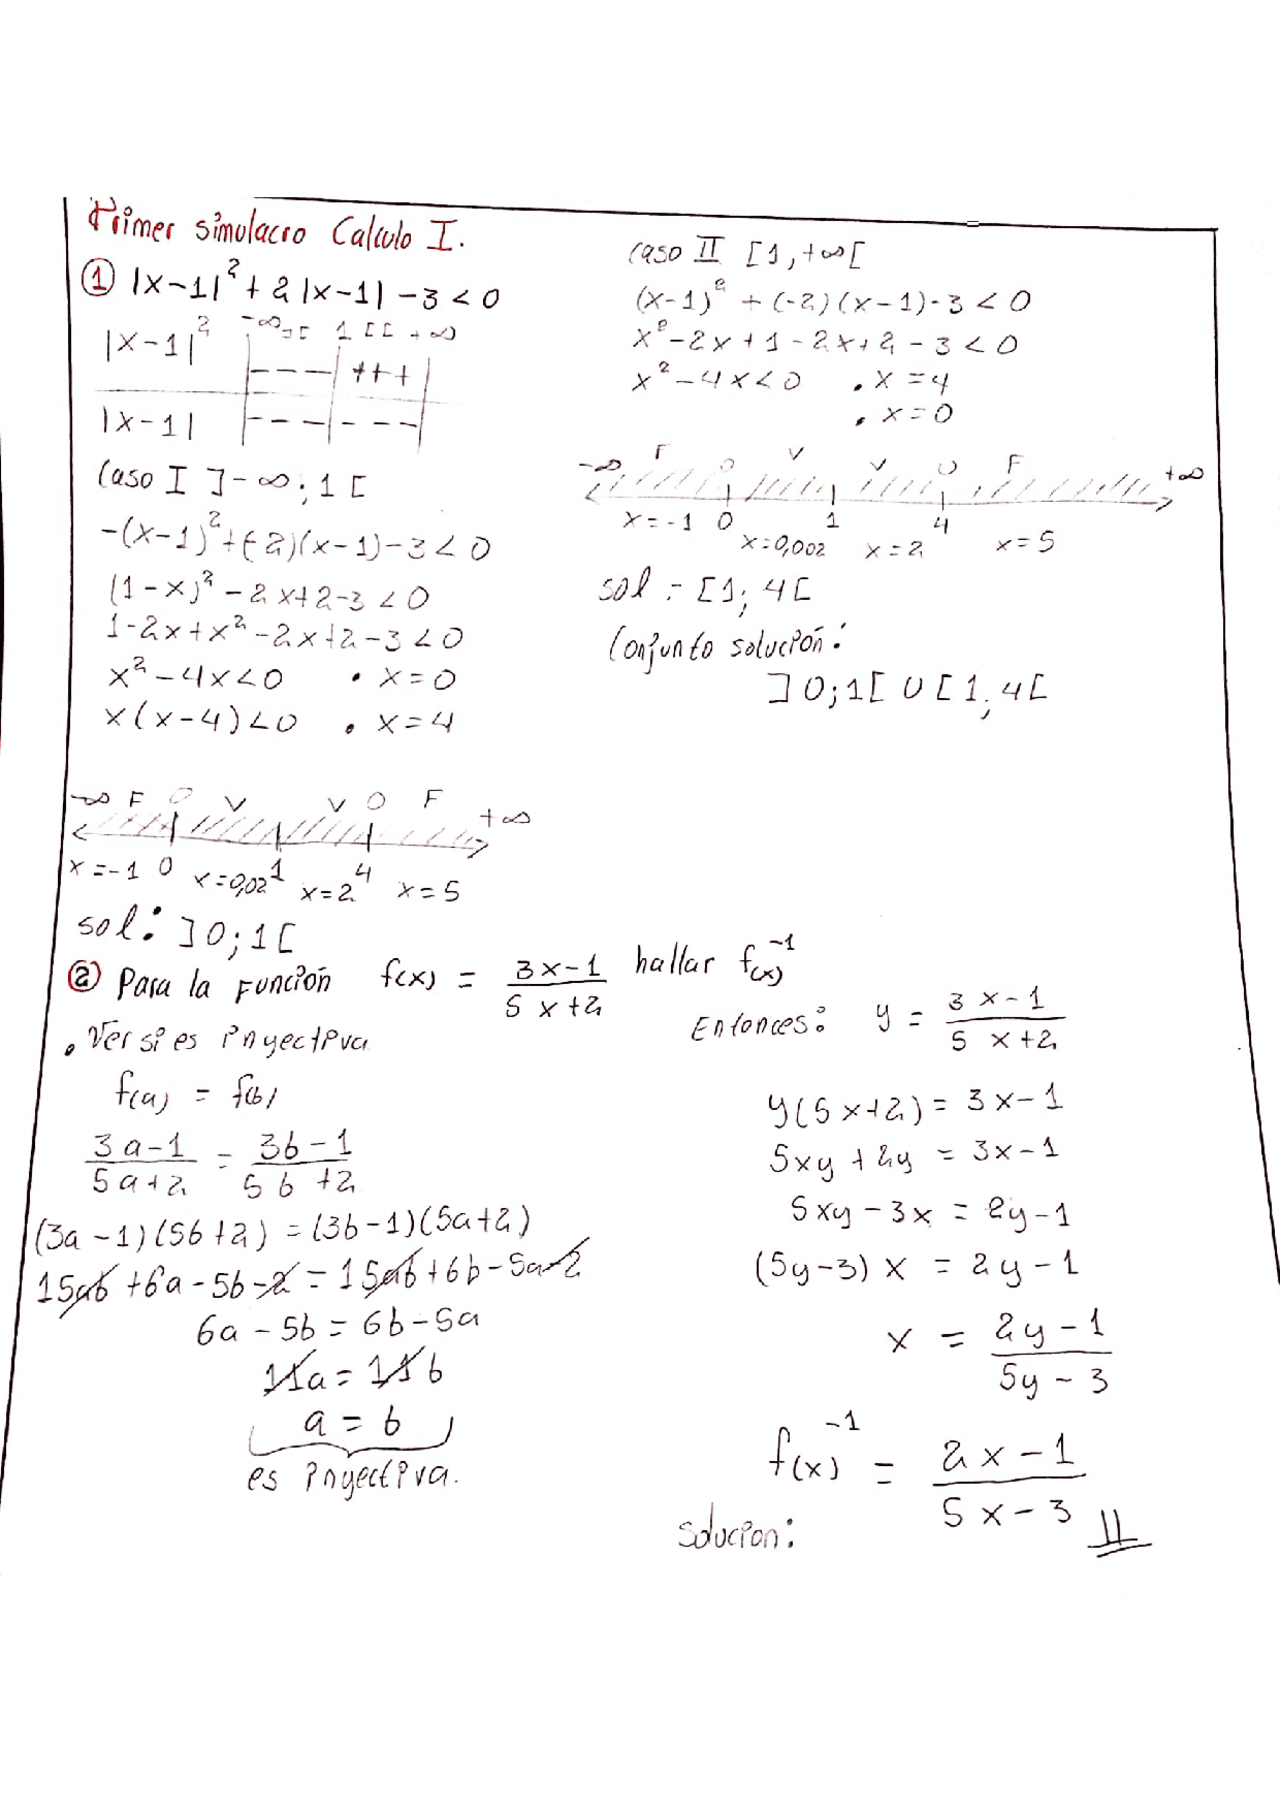 Primer simulacro Calculo I.
① |x-1|² + 2|x-1| - 3 < 0
-∞ ; [ 1 [ [ +∞
|x-1|² - - - +++
|x-1| - - - - - -
Caso I ]-∞;1[
-(x-1)²+(-2)(x-1)-3<0
(1-x)² - 2x+2-3<0
1-2x+x²-2x+2-3<0
x²-4x<0 • x=0
x(x-4)<0 • x=4
-∞ F O V V O F +∞
x=-1 0 x=0,02 1 x=2 4 x=5
sol: ]0;1[
Caso II [1,+∞[
(x-1)² + (-2)(x-1)-3<0
x²-2x+1-2x+2-3<0
x²-4x<0 • x=4
• x=0
-∞ F O V V O F +∞
x=-1 0 x=0,002 1 x=2 4 x=5
sol = [1; 4[
Conjunto solución:
]0;1[ U [1,4[
② Para la Función f(x) = 3x-1 / 5x+2 hallar f(x)⁻¹
• Ver si es inyectiva
f(a) = f(b)
3a-1 / 5a+2 = 3b-1 / 5b+2
(3a-1)(5b+2) = (3b-1)(5a+2)
15ab+6a-5b-2 = 15ab+6b-5a-2
6a-5b = 6b-5a
11a = 11b
a = b
es inyectiva.
Entonces: y = 3x-1 / 5x+2
y(5x+2) = 3x-1
5xy+2y = 3x-1
5xy-3x = 2y-1
(5y-3)x = 2y-1
x = 2y-1 / 5y-3
f(x)⁻¹ = 2x-1 / 5x-3
Solucion: